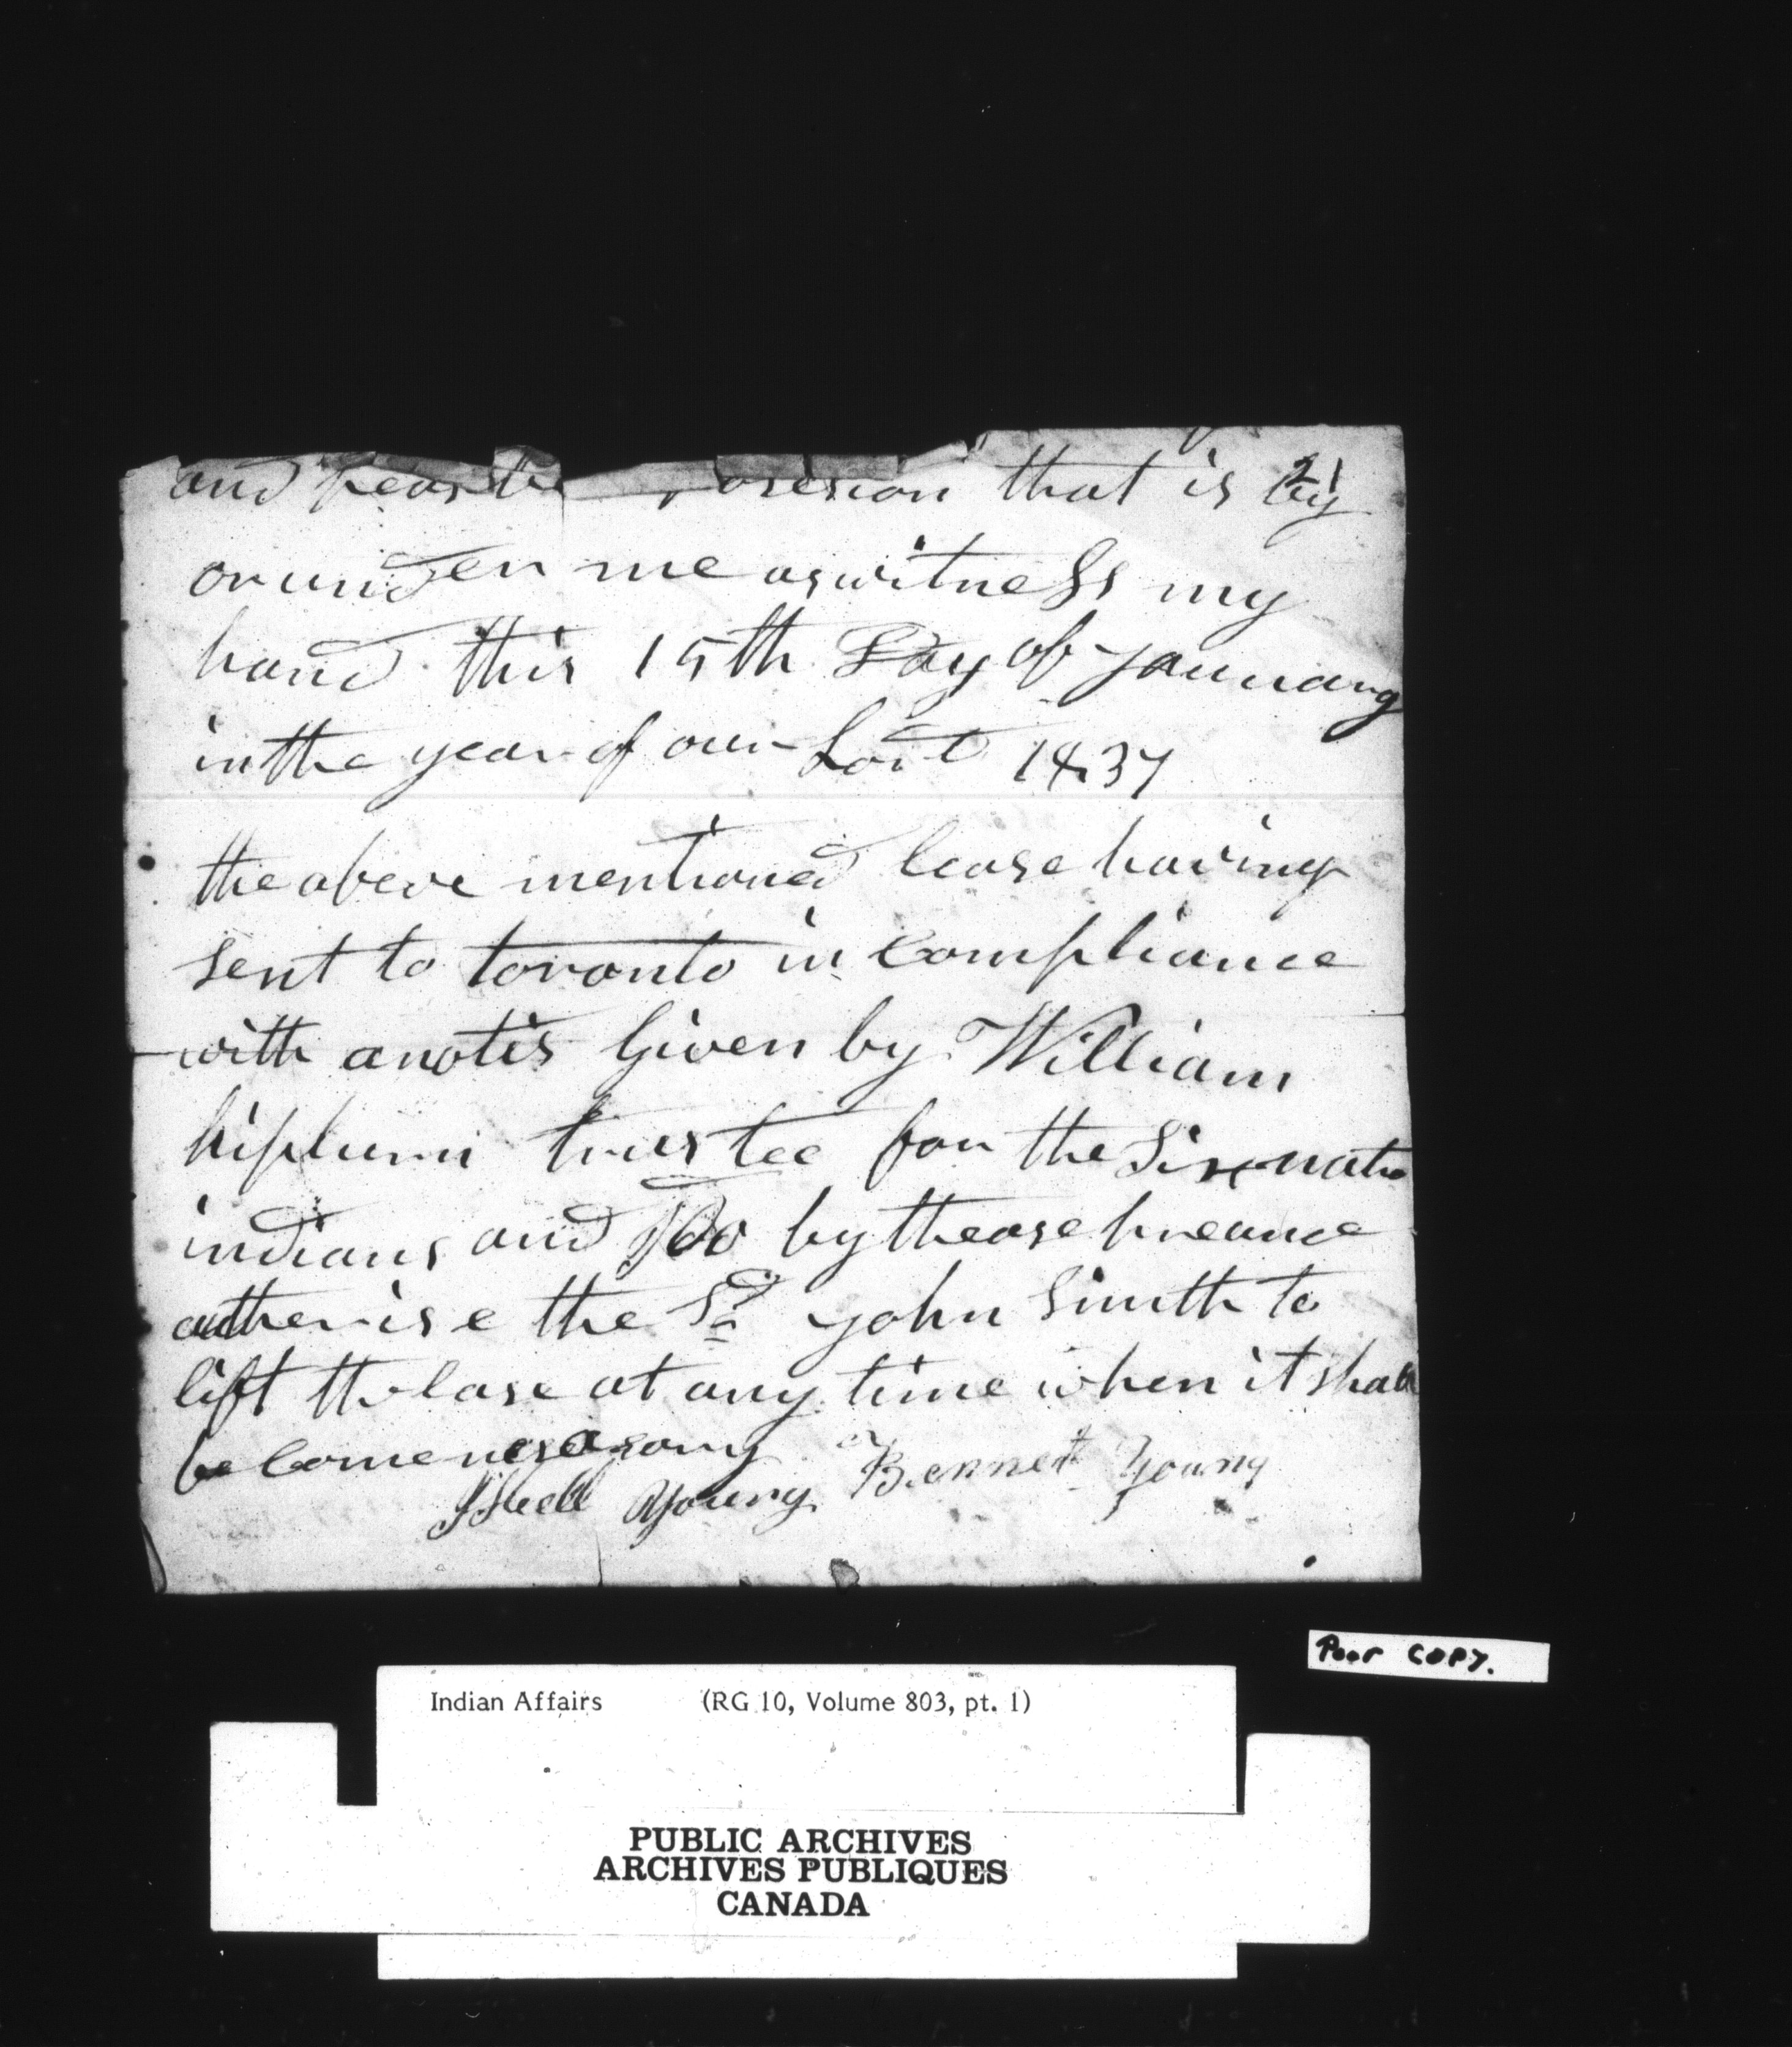 21
and peasable posesion that is by
or under me as witness my
hand this 15th Day of January
in the year of our Lord 1837
the above mentioned lease having
sent to toronto in Compliance
with a notis Given by William
hipburn trustee for the Six natio
indians and Do by thease preance
autherise the Sd John Smith to
lift the lase at any time when it shall
be Come nesasary
Bennet Young
Young
Poor COPY.
Indian Affairs (RG 10, Volume 803, pt. 1)
PUBLIC ARCHIVES
ARCHIVES PUBLIQUES
CANADA